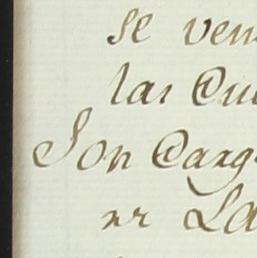 se ven
las Cu
Son Carg
nr La